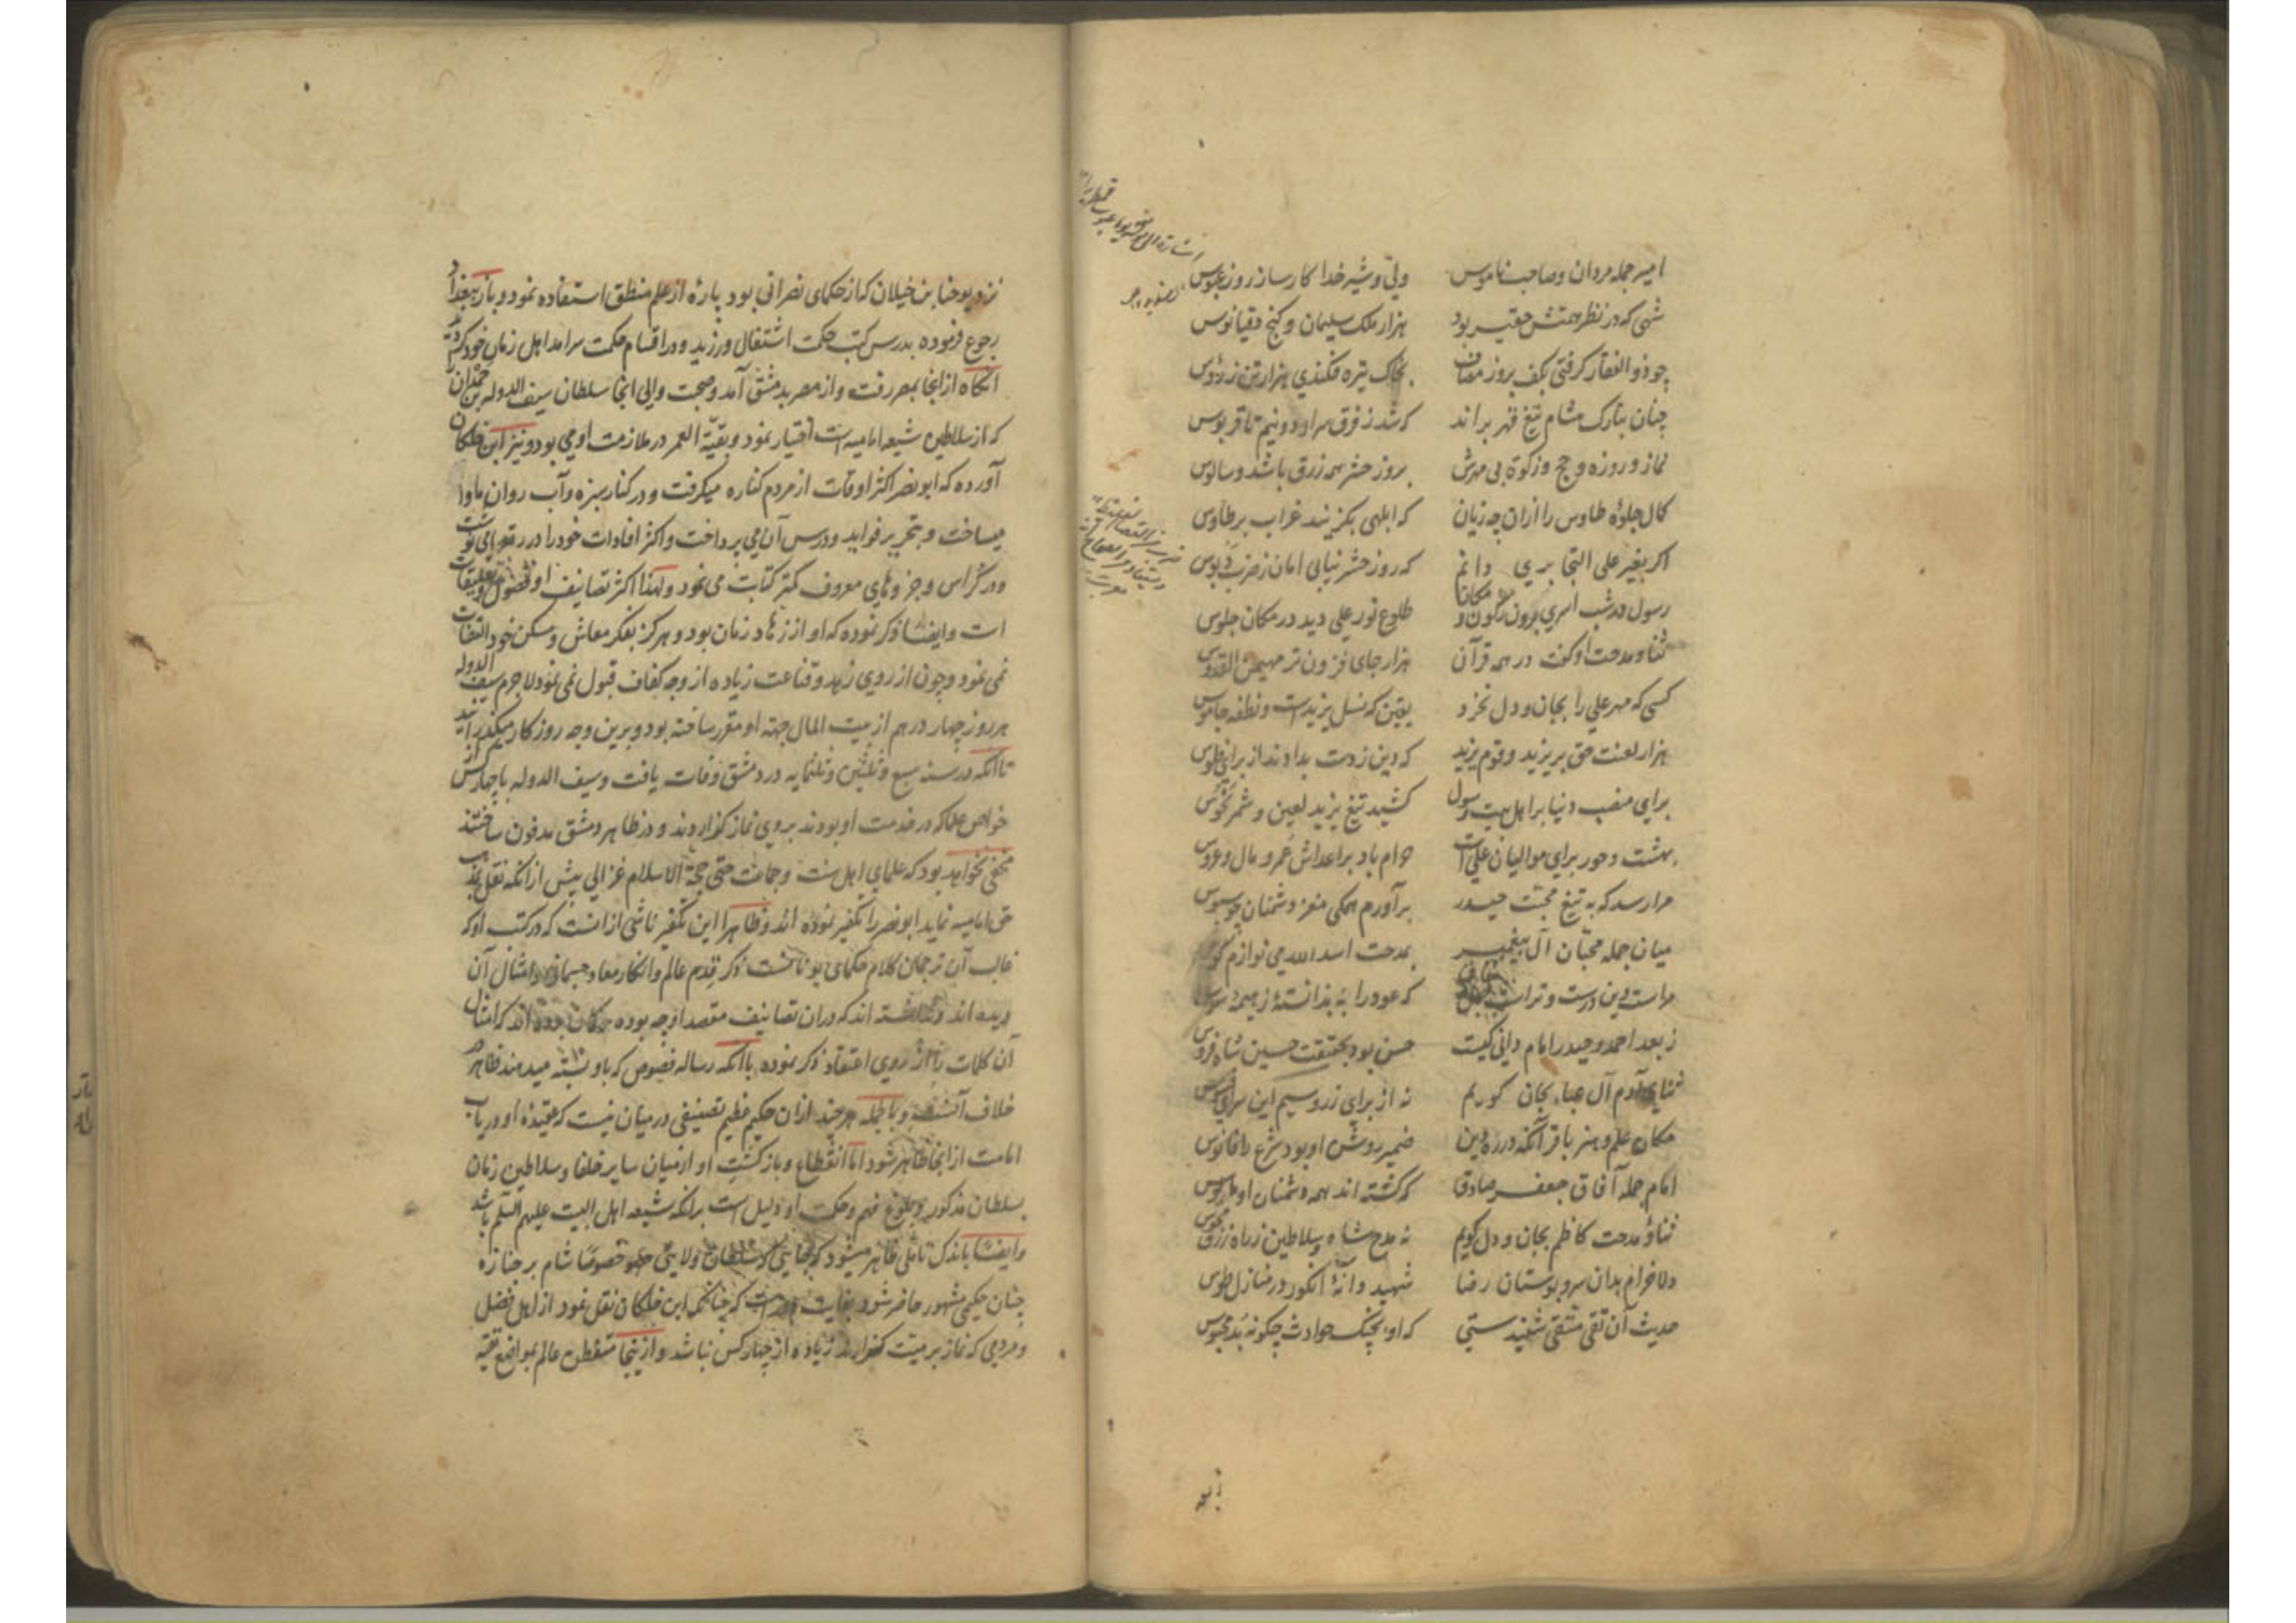 امیر جمله مردان و صاحب ناموس ولی و شیر خدا کارساز روز عبوس
شهی که در نظر همتش حقیر بود هزار ملک سلیمان و کنج دقیانوس
چو ذو الفقار کرفتی بکف بروز مصاف بخاک تیره فکندی هزار تن ز رؤس
چنان بتارک مشام تیغ قهر براند که شد ز فرق سر او دو نیم تا قربوس
نماز و روزه و حج و زکوة بی مهرش بروز حشر همه زرق باشد و سالوس
کمال جلوهٔ طاوس را ازان چه زیان که ابلهی بکزیند غراب بر طاوس
اکر بغیر علی التجا بری دانم که روز حشر نیابی امان ز ضرب دبوس
رسول در شب اسری برون ز کون و مکان طلوع نور علی دید در مکان جلوس
ثنا و مدحت او کفت در همه قرآن هزار جای فزون تر مهیمن القدوس
کسی که مهر علی را بجان و دل نخرد یقین که نسل یزیدست و نطفه جاموس
هزار لعنت حق بر یزید و قوم یزید که دین ز دست بدادند از برای فلوس
برای منصب دنیا بر اهل بیت رسول کشید تیغ یزید لعین و شمر نحوس
بهشت و حور برای موالیان علی است حرام باد بر اعداش عمر و مال و عروس
مرا رسد که به تیغ محبت حیدر برآورم همکی مغز دشمنان چو سبوس
میان جمله محبان آل پیغمبر بمدحت اسد الله می نوازم کوس
مراست دین درست و تراست که عود را نه بدانستهٔ ز هیمه
ز بعد احمد و حیدر امام دانی کیست حسن بود بحقیقت حسین شاه
ثنای آدم آل عبا بجان کویم نه از برای زر و سیم این سرای
مکان علم و هنر باقر آنکه در ره دین ضمیر روشن او بود شرع را فانوس
امام جمله آفاق جعفر صادق که کشته اند همه دشمنان او
ثنا و مدحت کاظم بجان و دل کویم نه مدح شاه و سلاطین ز راه زرق
دلا خرام بدان سرو بوستان رضا شهید دانهٔ انکور در منازل طوس
حدیث آن تقی متقی شنیدستی که او بچنک حوادث چکونه بد محبوس
نزد یوحنا بن خیلان که از حکمای نصرانی بود پارهٔ از علم منطق استفاده نمود و باز ببغداد
رجوع فرموده بدرس کتب حکمت اشتغال ورزید و در اقسام حکمت سرامد اهل زمان خود کردید
آنکاه از انجا بمصر رفت و از مصر بدمشق آمد و صحبت والی انجا سلطان سیف الدوله بن حمدان
که از سلاطین شیعه امامیه است اختیار نمود و بقیة العمر در ملازمت او می بود و نیز ابن خلکان
آورده که ابو نصر اکثر اوقات از مردم کناره میکرفت و در کنار سبزه و آب روان ماوا
میساخت و بتحریر فواید و درس آن می پرداخت و اکثر افادات خود را در رقعها می نوشت
و در کراس و جزوهای معروف کمتر کتابت می نمود و لهذا اکثر تصانیف او فصول و تعلیقات
است و ایضا ذکر نموده که او از زهاد زمان بود و هرکز بفکر معاش و مسکن خود التفات
نمی نمود و چون از روی زهد و قناعت زیاده از وجه کفاف قبول نمی نمود لاجرم سیف الدوله
هر روز چهار درهم از بیت المال جهة او مقرر ساخته بود و برین وجه روزکار میکذرانید
تا آنکه در سنه سبع و ثلثین و ثلثمایه در دمشق وفات یافت و سیف الدوله با چهار کس از
خواص علما که در خدمت او بودند بر وی نماز کزاردند و در ظاهر دمشق مدفون ساختند
مخفی نخواهد بود که علمای اهل سنت و جماعت حتی حجة الاسلام غزالی پیش از آنکه نقل بمذهب
حق امامیه نماید ابو نصر را تکفیر نموده اند و ظاهرا این تکفیر ناشی از انست که در کتب او که
غالب آن ترجمان کلام حکمای یونانست ذکر قدم عالم و انکار معاد جسمانی و امثال آن
دیده اند و ندانسته اند که دران تصانیف مقصد او چه بوده کمان برده اند که امثال
آن کلمات را از روی اعتقاد ذکر نموده باآنکه رساله فصوص که باو نسبت میدهند ظاهر در
خلاف آنست و بالجمله هر چند ازان حکیم عظیم تصنیفی در میان نیست که عقیدهٔ او در باب
امامت از انجا ظاهر شود اما انقطاع و بازکشت او از میان سایر خلفا و سلاطین زمان
بسلطان مذکور و بلوغ فهم و حکمت او دلیل است برانکه شیعه اهل البیت علیهم السلم باشد
و ایضا باندک تاملی ظاهر میشود که بجایی که سلطان ولایتی خصوصا شام بر جنازه
چنان حکیمی مشهور حاضر شود بغایت که چنانکه ابن خلکان نقل نمود از اهل فضل
و مردمی که نماز بر میت کزارند زیاده از چهار کس نباشد و از ینجا متفطن عالم بمواضع تقیه